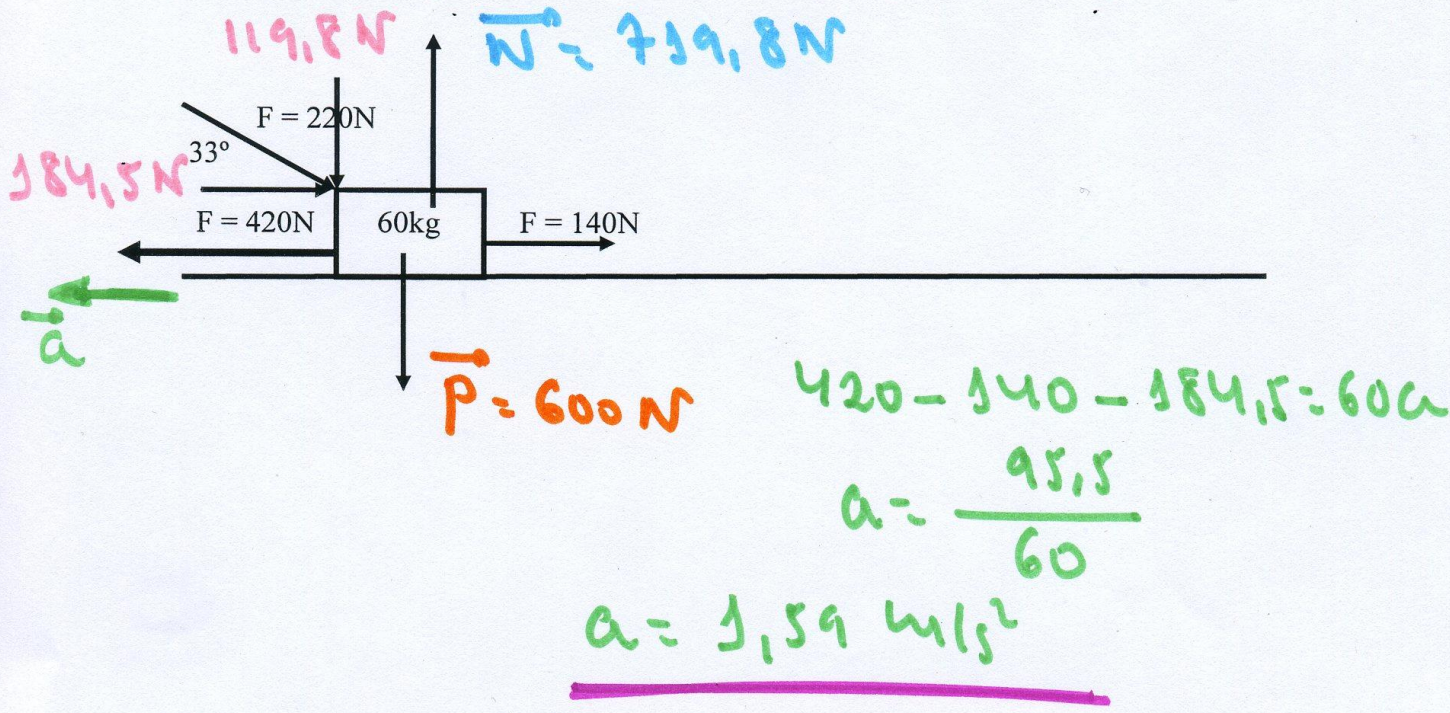 119,8N
N = 719,8N
F = 220N
33º
184,5N
F = 420N
60kg
F = 140N
a
P = 600N
420 - 140 - 184,5 = 60a
a = 95,5
60
a = 1,59 m/s²